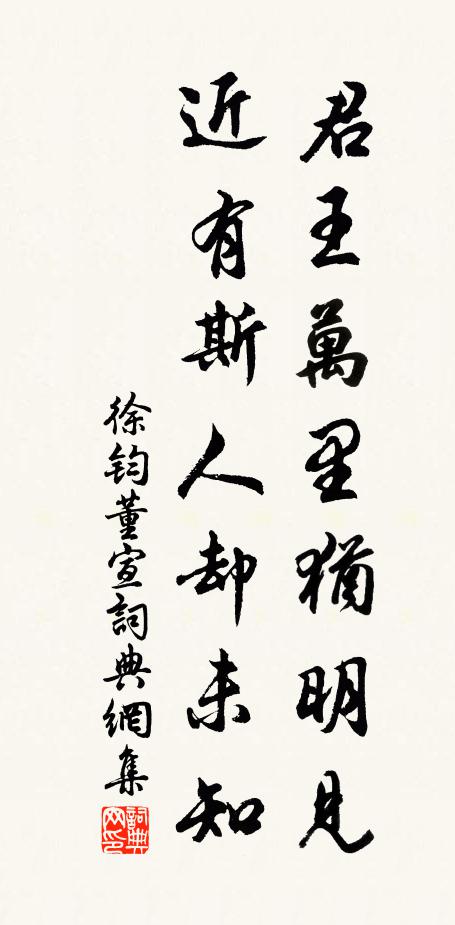 君王萬里猶明見
近有斯人却未知
徐鈞董宣詞典網集
詞典网印